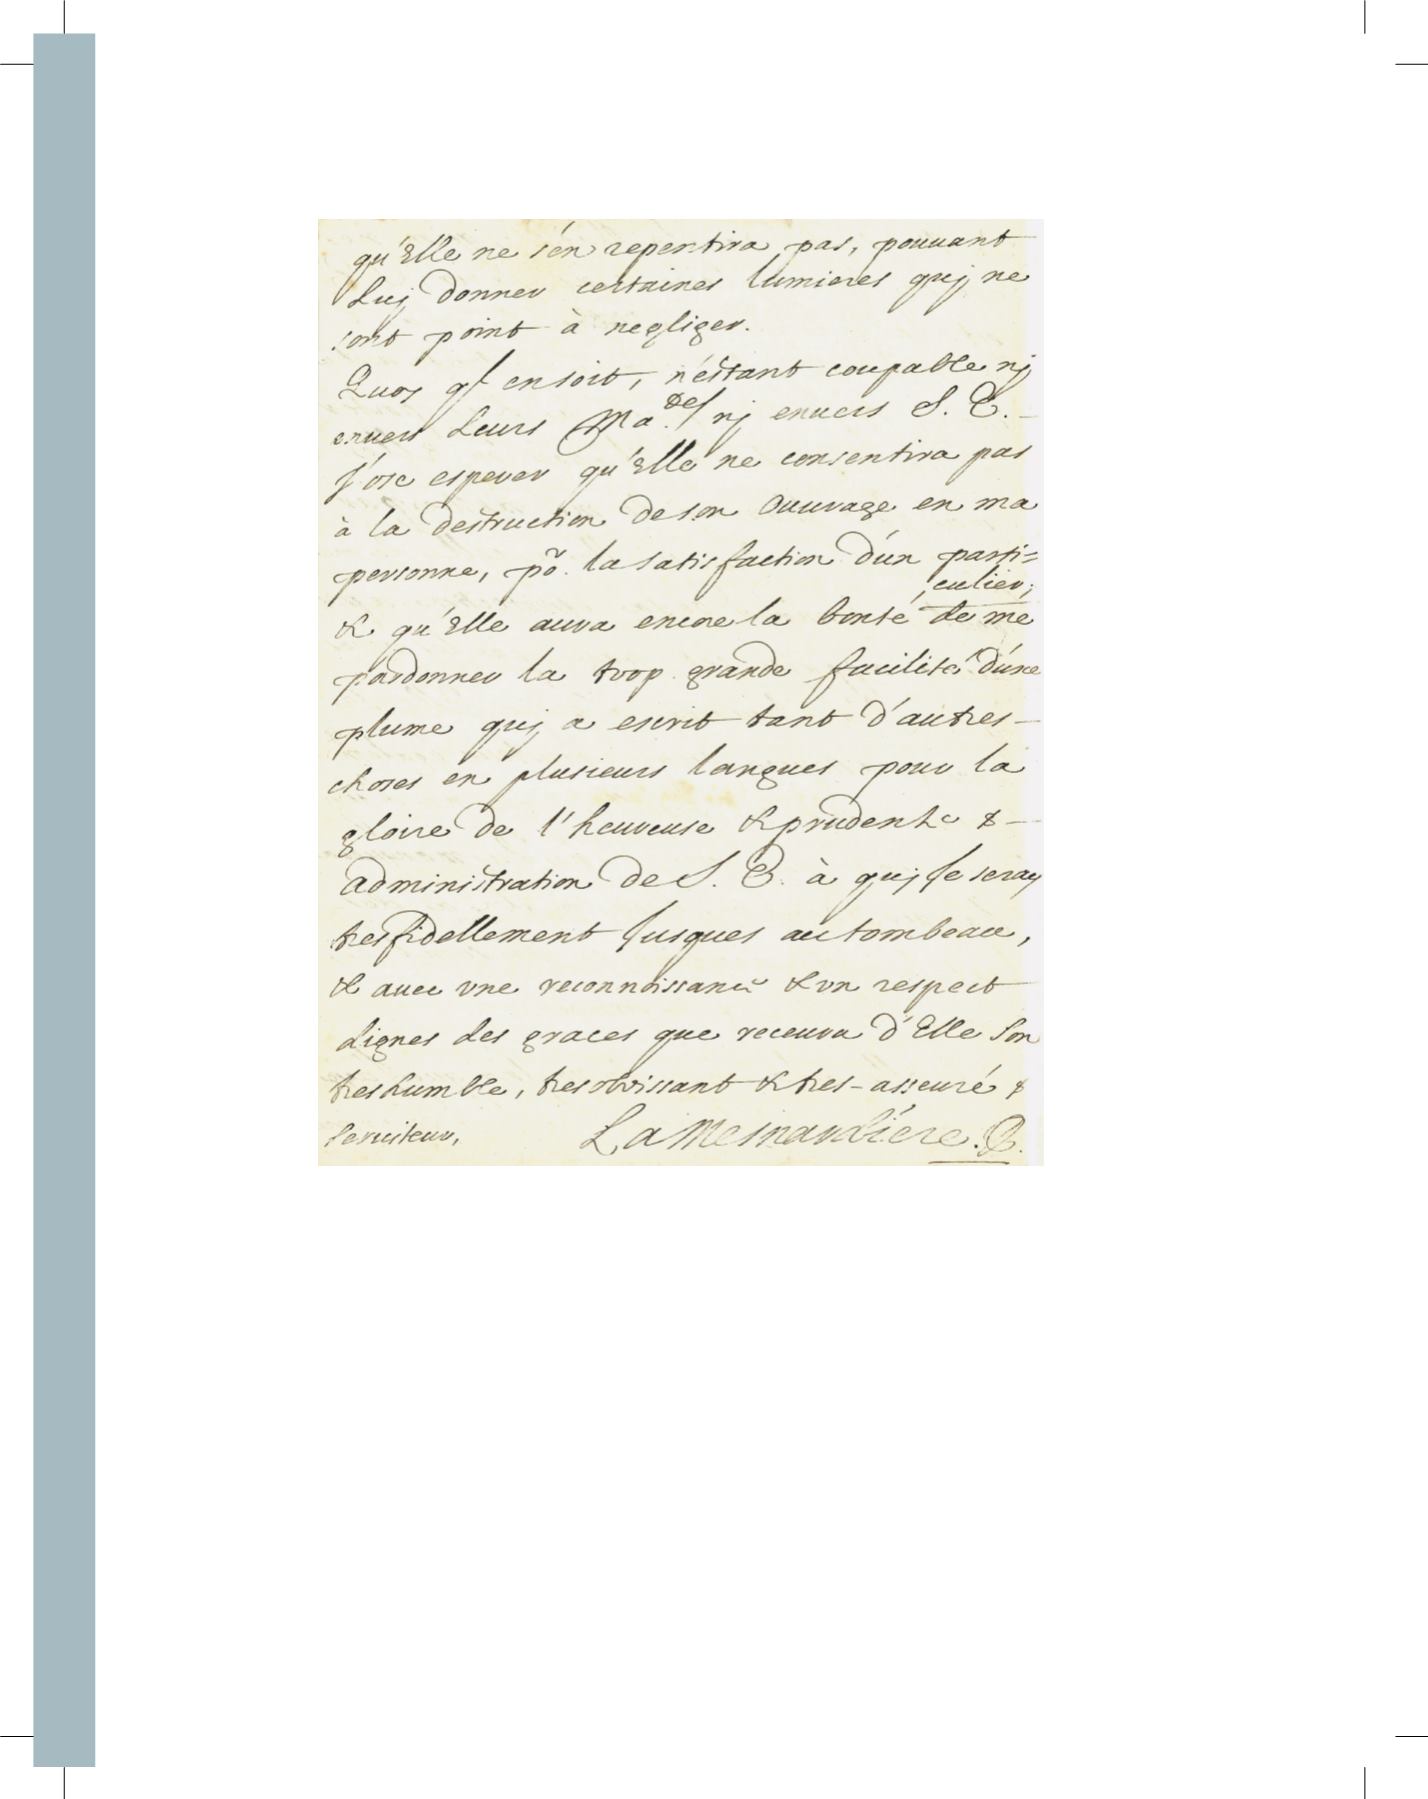 qu'Elle ne s'en repentira pas, pouuant
Luj donner certaines lumieres quj ne
sont point à negliger.
Quoy en soit, n'estant coupable nj
enuers Leurs Ma.tez nj enuers S. E.
j'ose esperer qu'Elle ne consentira pas
à la destruction de son Ouurage en ma
personne, po.r la satisfaction d'un parti=
culier;
& qu'Elle aura encore la bonté de me
pardonner la trop grande facilité d'une
plume quj a escrit tant d'autres
choses en plusieurs langues pour la
gloire de l'heureuse & prudente
administration de S. E. à quj je seray
tres fidellement jusques au tombeau,
& auec vne reconnoissance & vn respect
dignes des graces que receura d'Elle Son
tres humble, tres obeissant & tres-asseuré
seruiteur,
La Mesnardiére.